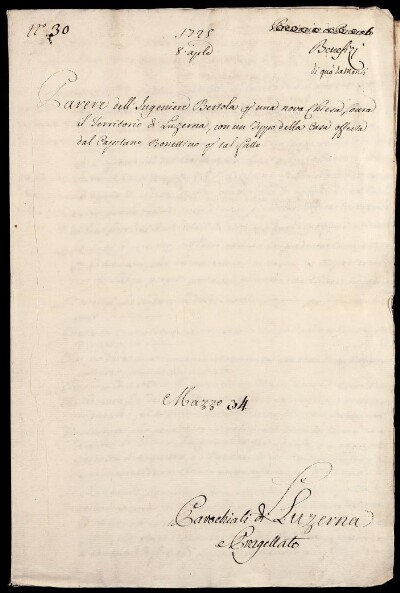 N.º 30
1728
8 aprile
Benefizj
di quà da Monti
Parere dell'Ingeniere Bertola p una nova Chiesa sovra
il Territorio di Luzerna, con un Tippo della Casa offerta
dal Capitano Bonettino p tal fatto
Mazzo 34
Parochiali di Luzerna
e